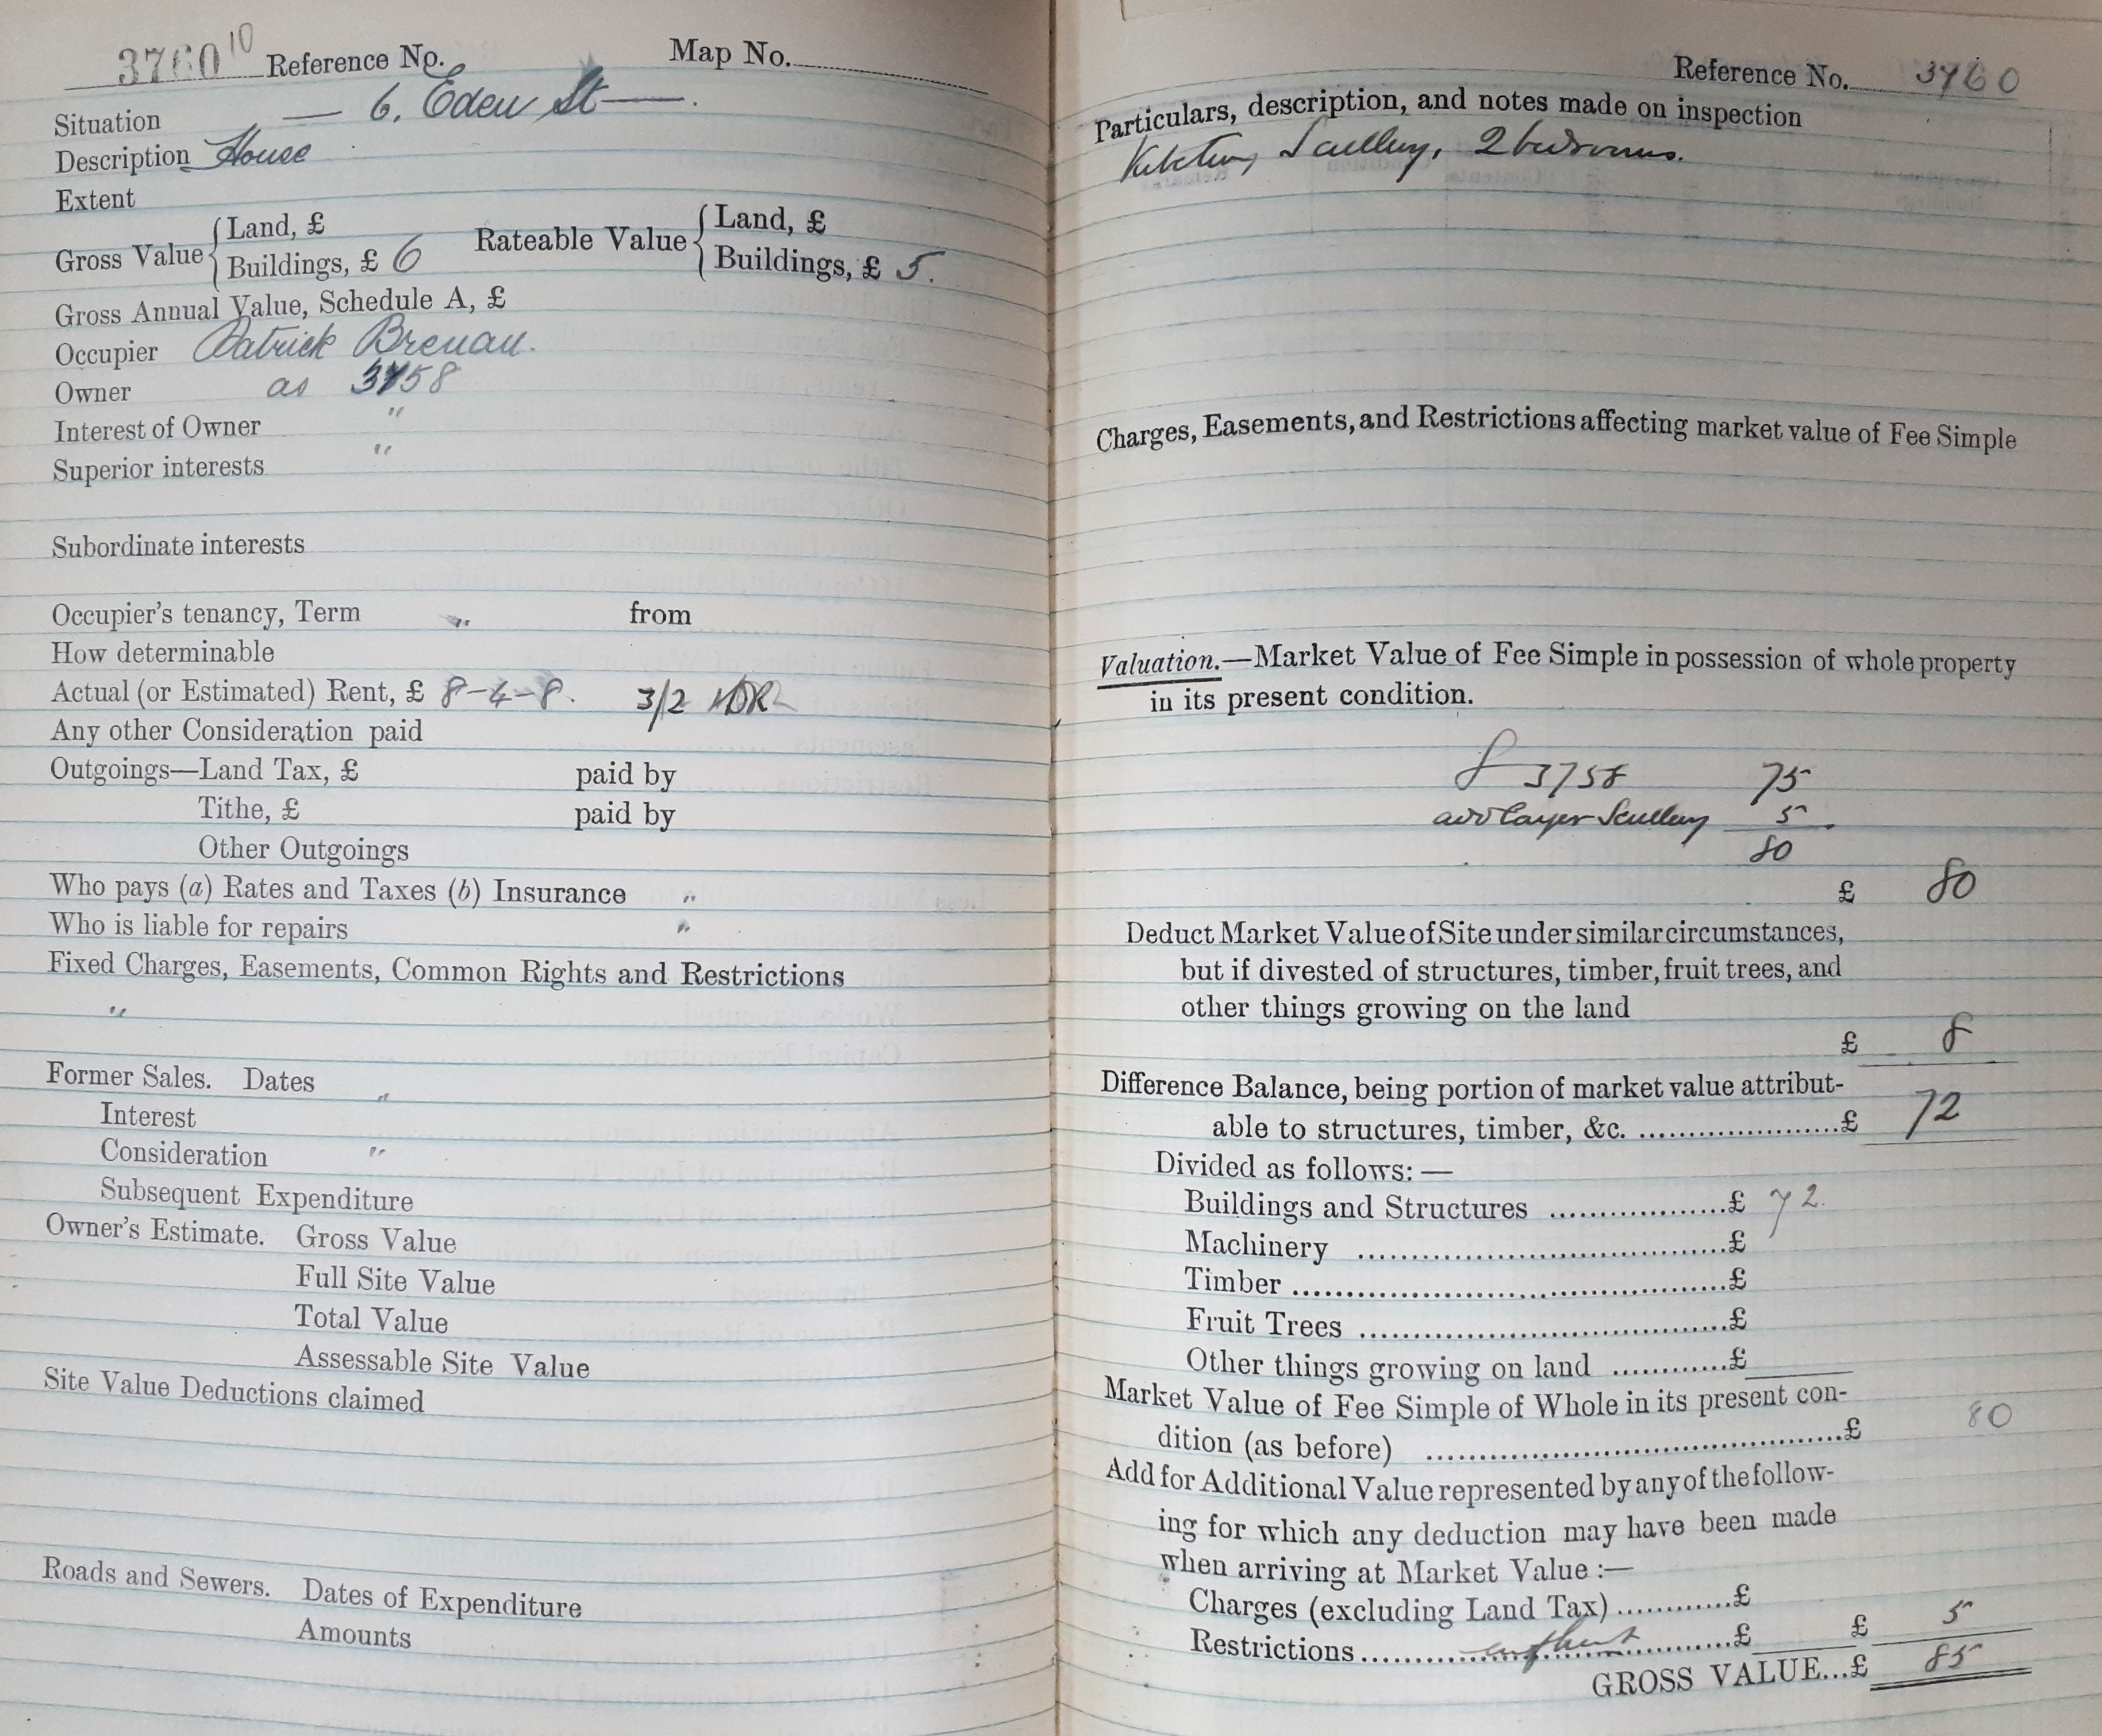 3760 10 Reference No. Map No.
Situation — 6, Eden St —.
Description House
Extent
Gross Value { Land, £ Rateable Value { Land, £
Buildings, £ 6 Buildings, £ 5.
Gross Annual Value, Schedule A, £
Occupier Patrick Brenan.
Owner as 3758
Interest of Owner "
Superior interests "
Subordinate interests
Occupier's tenancy, Term " from
How determinable
Actual (or Estimated) Rent, £ 8-4-8. 3/2
Any other Consideration paid
Outgoings—Land Tax, £ paid by
Tithe, £ paid by
Other Outgoings
Who pays (a) Rates and Taxes (b) Insurance "
Who is liable for repairs "
Fixed Charges, Easements, Common Rights and Restrictions
"
Former Sales. Dates "
Interest
Consideration "
Subsequent Expenditure
Owner's Estimate. Gross Value
Full Site Value
Total Value
Assessable Site Value
Site Value Deductions claimed
Roads and Sewers. Dates of Expenditure
Amounts
Reference No. 3760
Particulars, description, and notes made on inspection
Kitchen, Scullery, 2 bedrooms.
Charges, Easements, and Restrictions affecting market value of Fee Simple
Valuation.—Market Value of Fee Simple in possession of whole property
in its present condition.
3758 75
add larger Scullery 5
80
£ 80
Deduct Market Value of Site under similar circumstances,
but if divested of structures, timber, fruit trees, and
other things growing on the land
£ 8
Difference Balance, being portion of market value attribut-
able to structures, timber, &c. ......................£ 72
Divided as follows: —
Buildings and Structures ...................£ 72.
Machinery ........................................£
Timber ..............................................£
Fruit Trees ......................................£
Other things growing on land ............£
Market Value of Fee Simple of Whole in its present con-
dition (as before) ..........................................£ 80
Add for Additional Value represented by any of the follow-
ing for which any deduction may have been made
when arriving at Market Value :—
Charges (excluding Land Tax) ............£
Restrictions ...............................£ £ 5
GROSS VALUE...£ 85